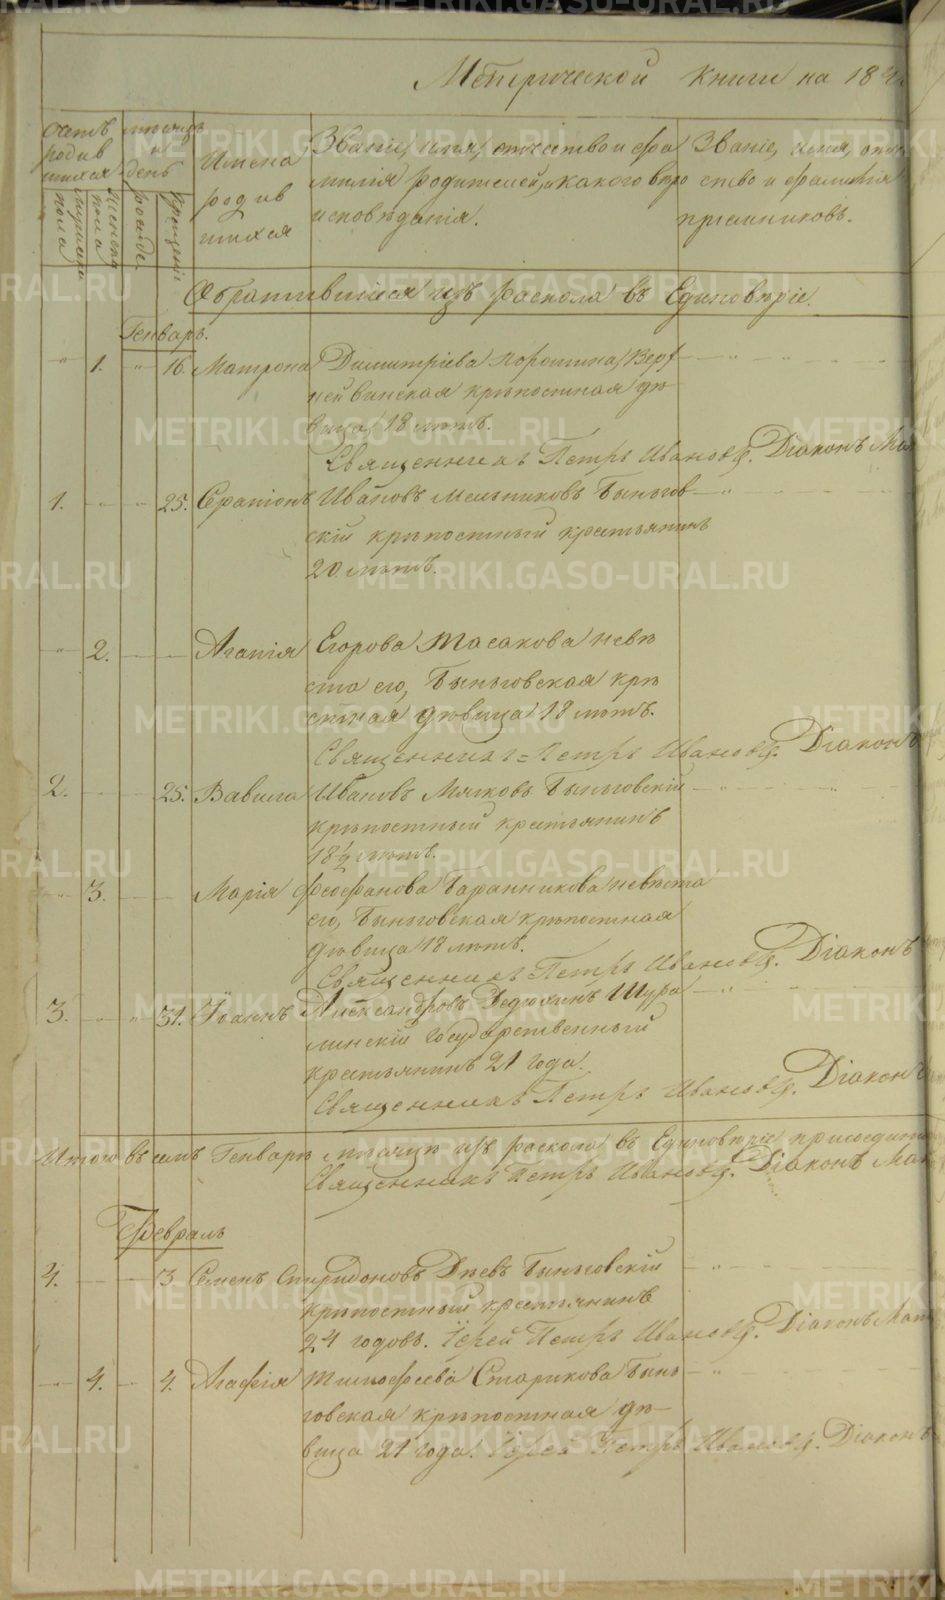 Метрической книги на 18
Счетъ родив шихся
мѣсяцъ и день
Имена родив шихся
Званіе, имя, отчество и фа
милія родителей, и какого вѣро
исповѣданія.
Званіе, имя, отче
ство и фамилія
пріемниковъ.
мужеска пола
женска пола
рожденія
крещенія
Обратившіеся изъ раскола въ Единовѣріе.
Генварь.
" 1. " 16. Матрона Димитріева Порошина, Верх
нейвинская крѣпостная дѣ
вица, 18 лѣтъ.
Священникъ Петръ Ивановъ. Діаконъ
1. 25. Серапіонъ Ивановъ Мельниковъ Быньгов
скій крѣпостный крестьянинъ
20 лѣтъ.
" 2. Агапія Егорова Масакова невѣ
ста его, Быньговская крѣ
стная дѣвица 18 лѣтъ.
Священникъ Петръ Ивановъ. Діаконъ
2. 25. Вавила Ивановъ Мягковъ Быньговскій
крѣпостный крестьянинъ
18½ лѣтъ.
3. Марія Феофанова Баранникова невѣста
его, Быньговская крѣпостная
дѣвица 18 лѣтъ.
Священникъ Петръ Ивановъ. Діаконъ
3. " " 31. Іоаннъ Александровъ Федюхинъ Шура
линскій Государственный
крестьянинъ 21 года.
Священникъ Петръ Ивановъ. Діаконъ
Итого въ семъ Генварѣ мѣсяцѣ изъ раскола въ Единовѣріе
Священникъ Петръ Ивановъ. Діаконъ
Февраль
4. 3 Семенъ Спиридоновъ Дѣевъ Быньговскій
крѣпостный крестьянинъ
24 годовъ. Іерей Петръ Ивановъ. Діаконъ
4. 4. Агафія Тимофеева Старикова Бынь
говская крѣпостная дѣ
вица 21 года. Іерей Петръ Ивановъ. Діаконъ
METRIKI.GASO-URAL.RU